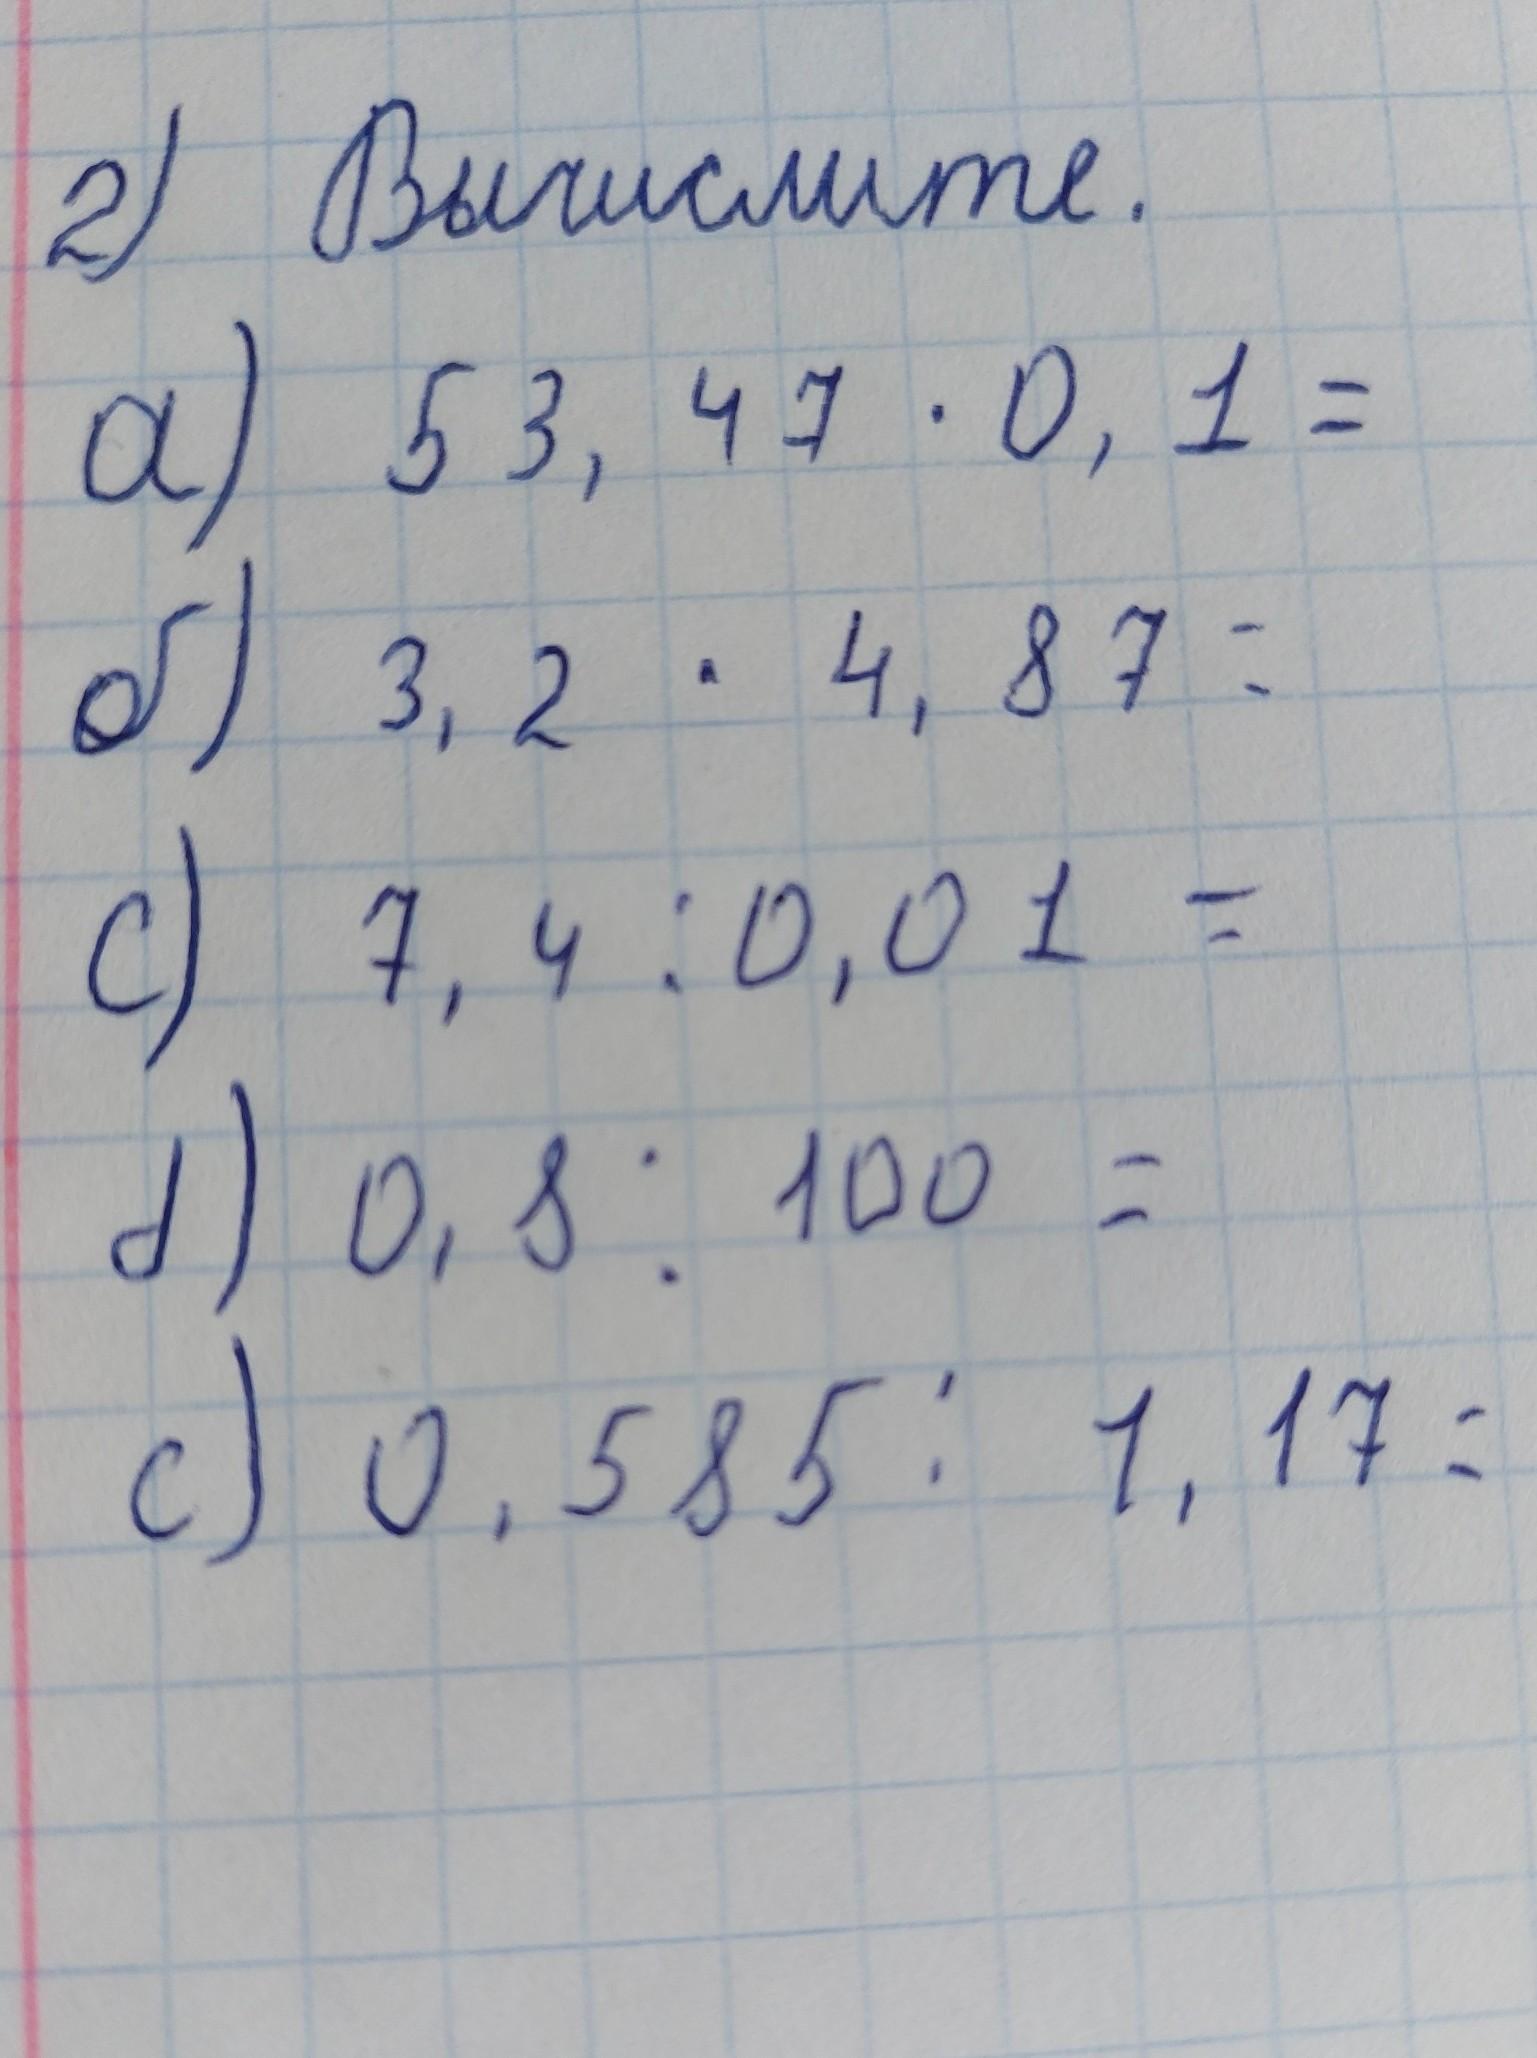 2) Вычислите.
а) 53,47 · 0,1 =
б) 3,2 · 4,87 =
c) 7,4 : 0,01 =
d) 0,8 : 100 =
c) 0,585 : 1,17 =